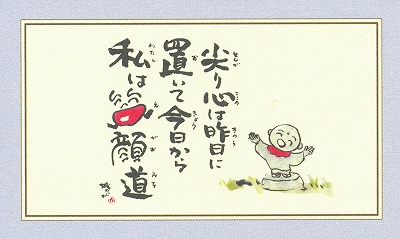 尖り心は昨日に
置いて今日から
私は笑顔道